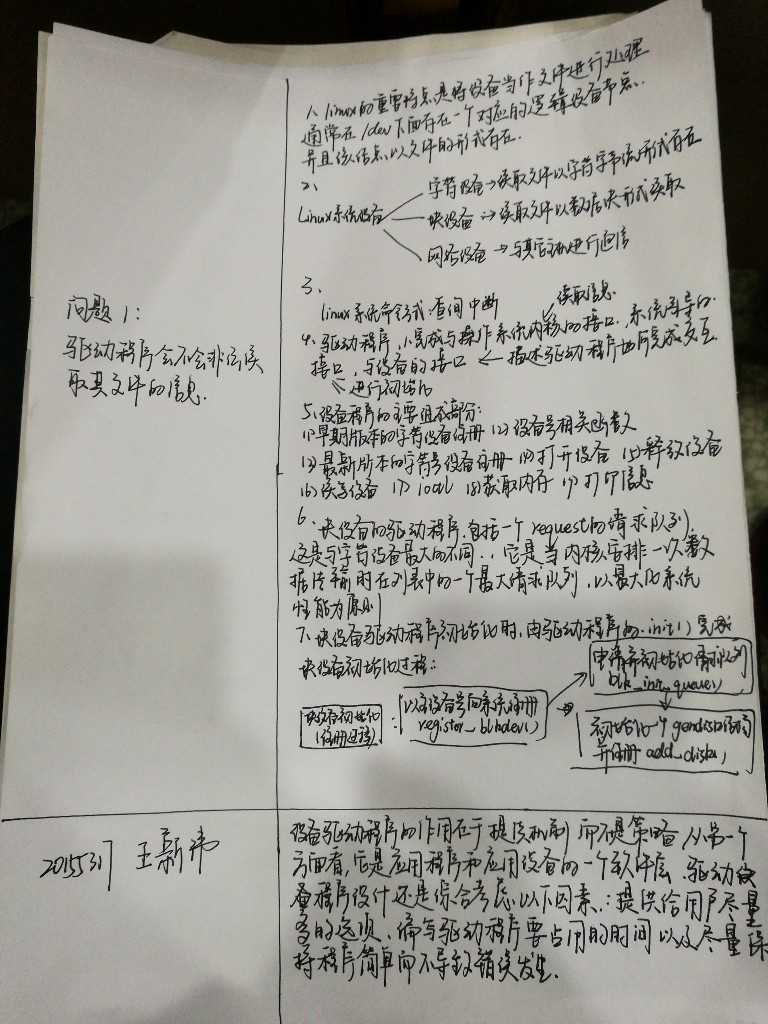 1、linux的重要特点是将设备当作文件进行处理
通常在/dev下面存在一个对应的逻辑设备节点.
并且该结点以文件的形式存在.
2、
Linux系统设备
字符设备→读取文件以字符字节流形式存在
块设备→读取文件以数据块形式读取
网络设备→与其它主机进行通信
问题1:
驱动程序会不会非法读
取其文件的信息.
3、
linux系统命令方式:查询 中断
读取信息
4、驱动程序,1、完成与操作系统内核的接口.系统引导的
接口,与设备的接口 ← 描述驱动程序如何完成交互.
进行初始化
5、设备程序的主要组成部分:
(1)早期版本的字符设备注册 (2)设备号相关函数
(3)最新版本的字符设备注册 (4)打开设备 (5)释放设备
(6)读写设备 (7) ioctl (8)获取内存 (9)打印信息
6、块设备的驱动程序.包括一个request的请求队列.
这是与字符设备最大的不同..它是当内核安排一次数
据传输时在列表中的一个最大请求队列,以最大化系统
性能为原则
7、块设备驱动程序初始化时,由驱动程序的.init()完成
块设备初始化过程:
块设备初始化
(注册过程)
:
以主设备号向系统注册
register_blkdev()
申请并初始化请求队列
blk_init_queue()
初始化一个gendisk结构
并注册add_disk()
2015317 王新伟
设备驱动程序的作用在于提供机制而不是策略从另一个
方面看,它是应用程序和应用设备的一个软件层.驱动设
备程序设计还是综合考虑以下因素.:提供给用户尽量
多的选项、编写驱动程序要占用的时间以及尽量保
持程序简单而不导致错误发生.